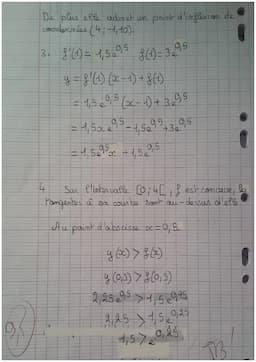 De plus elle admet un point d'inflexion de
coordonnées (4 ; -1,10).
3. f'(1) = 1,5e^0,5 f(1) = 3e^0,5
y = f'(1) (x-1) + f(1)
= 1,5e^0,5 (x-1) + 3e^0,5
= 1,5xe^0,5 - 1,5e^0,5 + 3e^0,5
= 1,5e^0,5x + 1,5e^0,5
4. Sur l'intervalle [0 ; 4[, f est concave, la
tangentes à sa courbe sont au-dessus d'elle
Au point d'abscisse x = 0,5
y(x) > f(x)
y(0,5) > f(0,5)
2,25e^0,5 > 1,5e^0,75
2,25 > 1,5e^0,25
1,5 > e^0,25
TB!